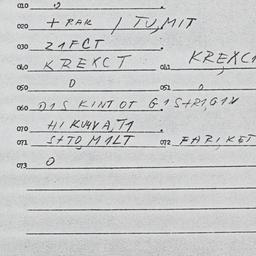 010
020 + PAK / TU,MIT
030 Z1FCT
040 KREXCT 041 KREXC
050 0 051 0
060 D1S KINTOT G1STR1,G1V
070 HI KU4VA,T1
071 S+TO,M1LT 072 FARIKET
073 0